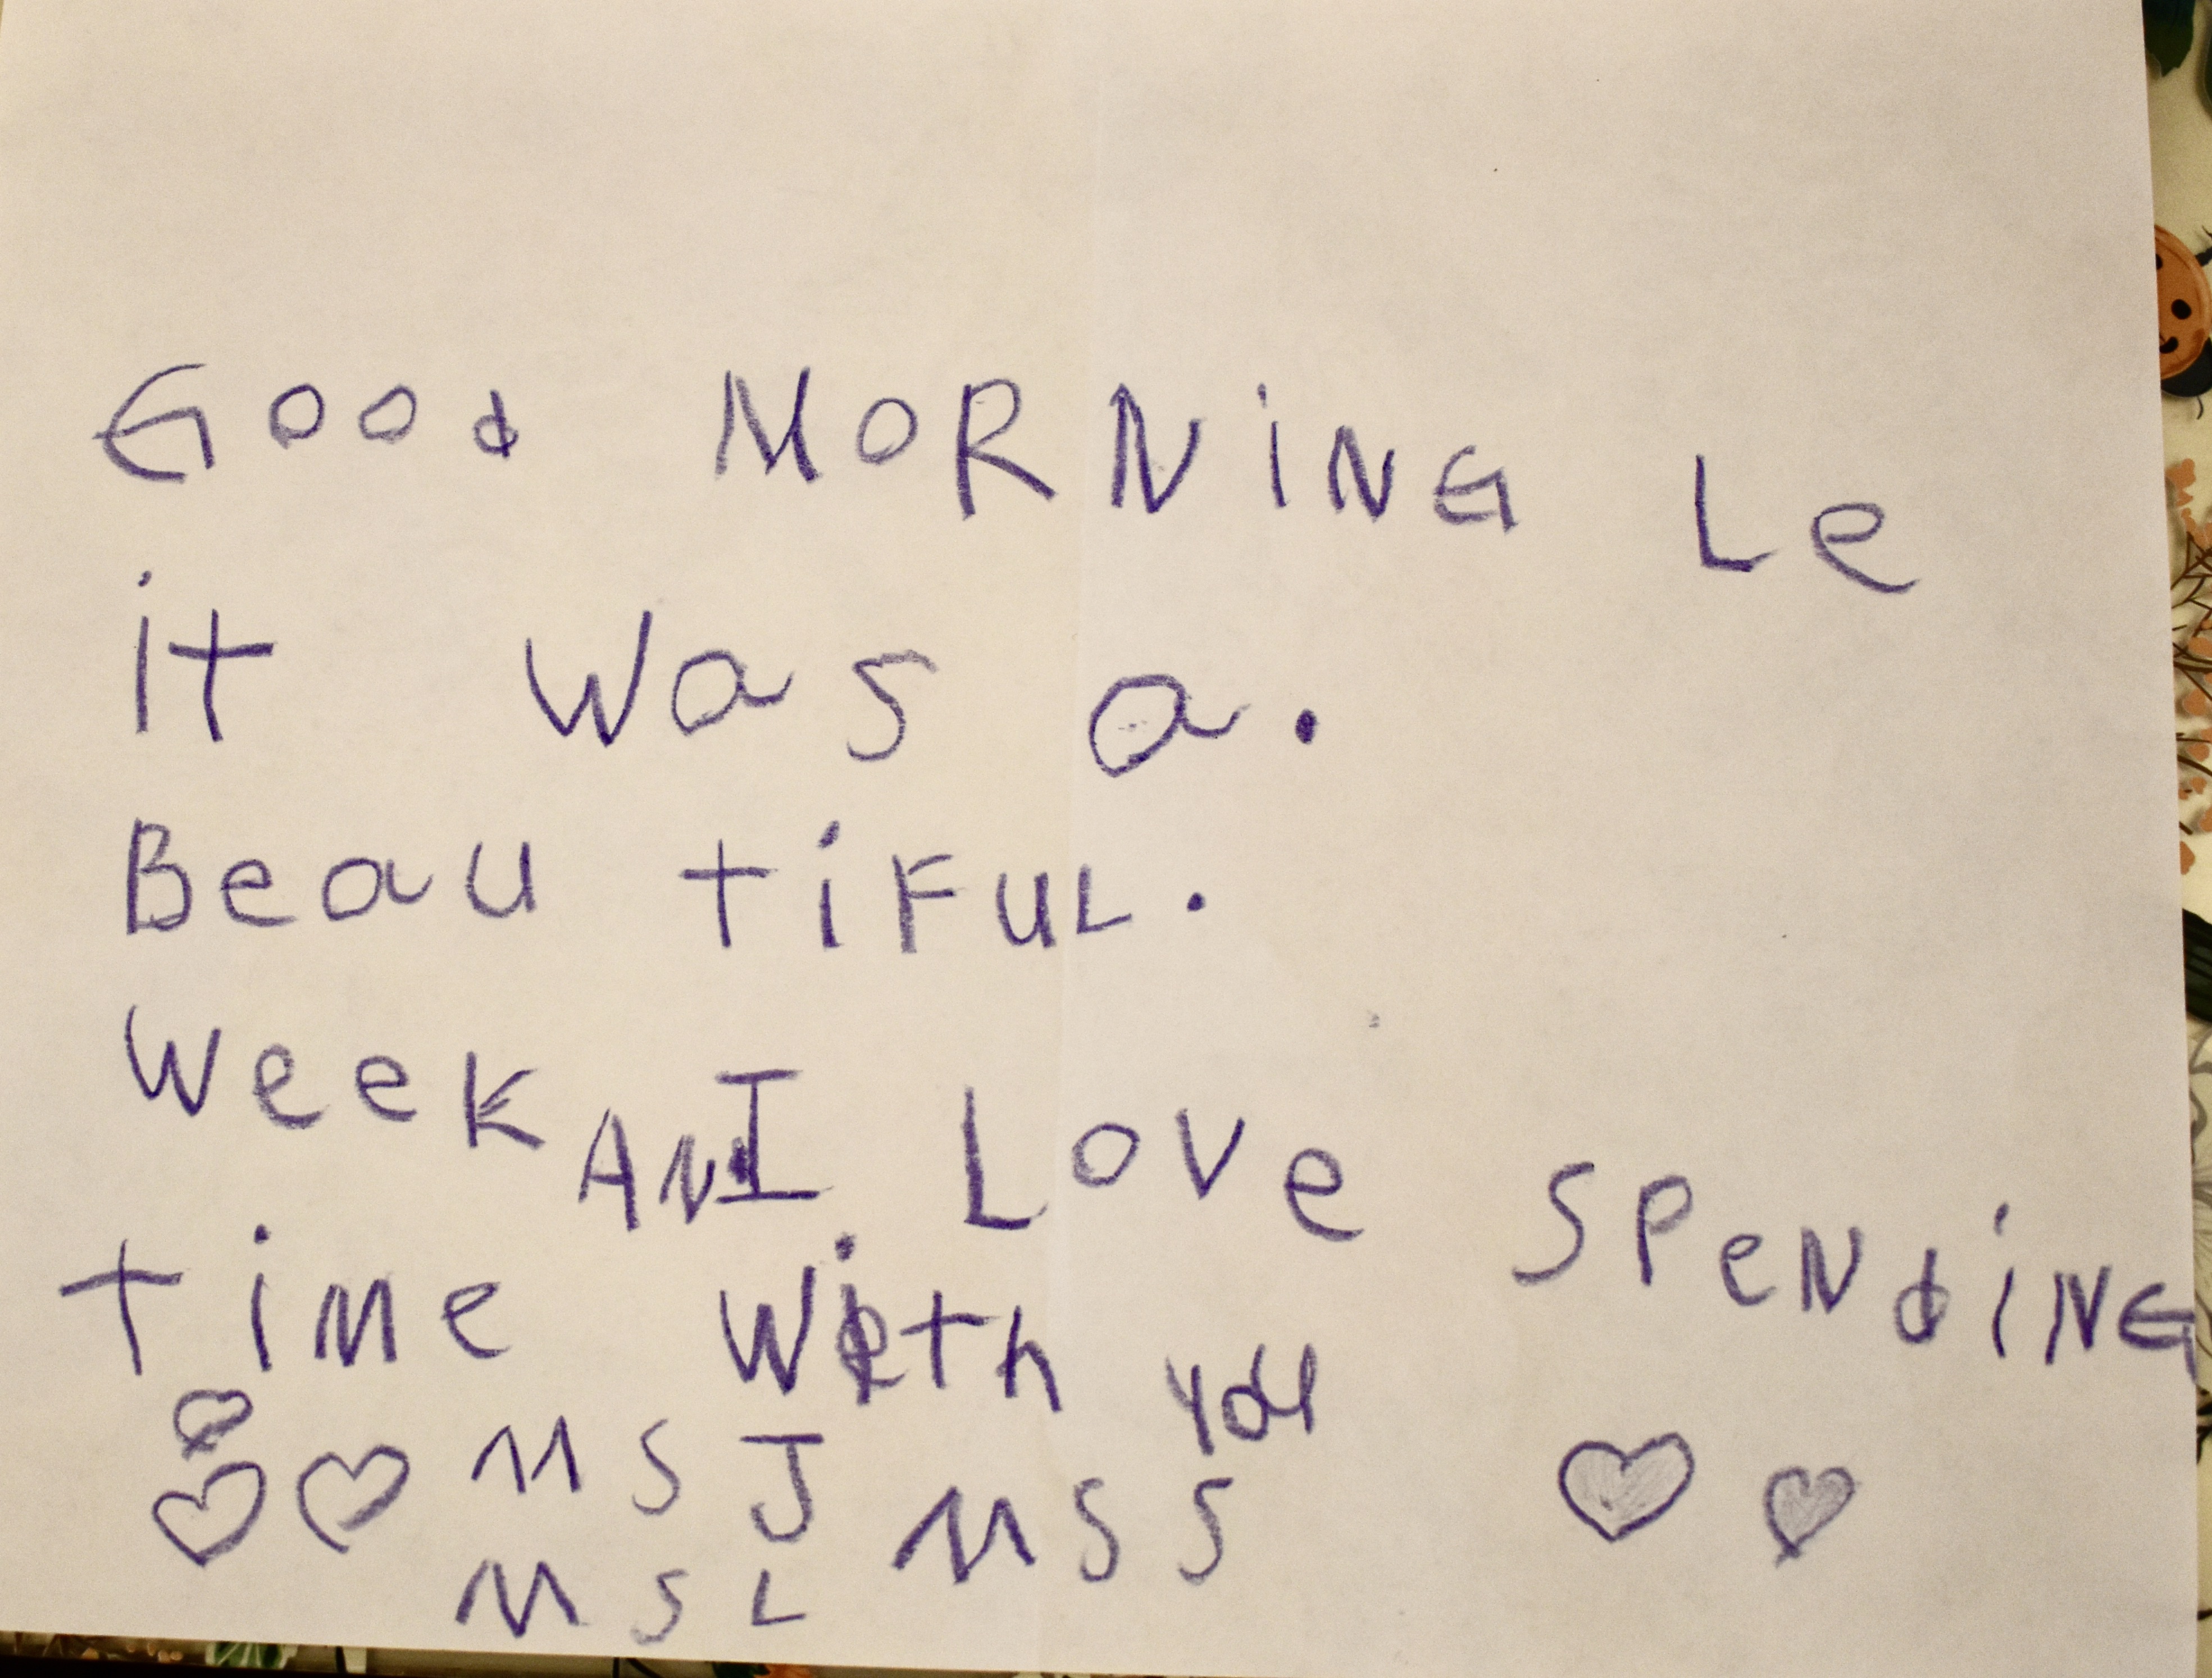 GOOd MORNiNG Le
it was a.
Beau tiFuL.
week AN I Love SPeNdiNG
time With you
MS J MS S
MS L